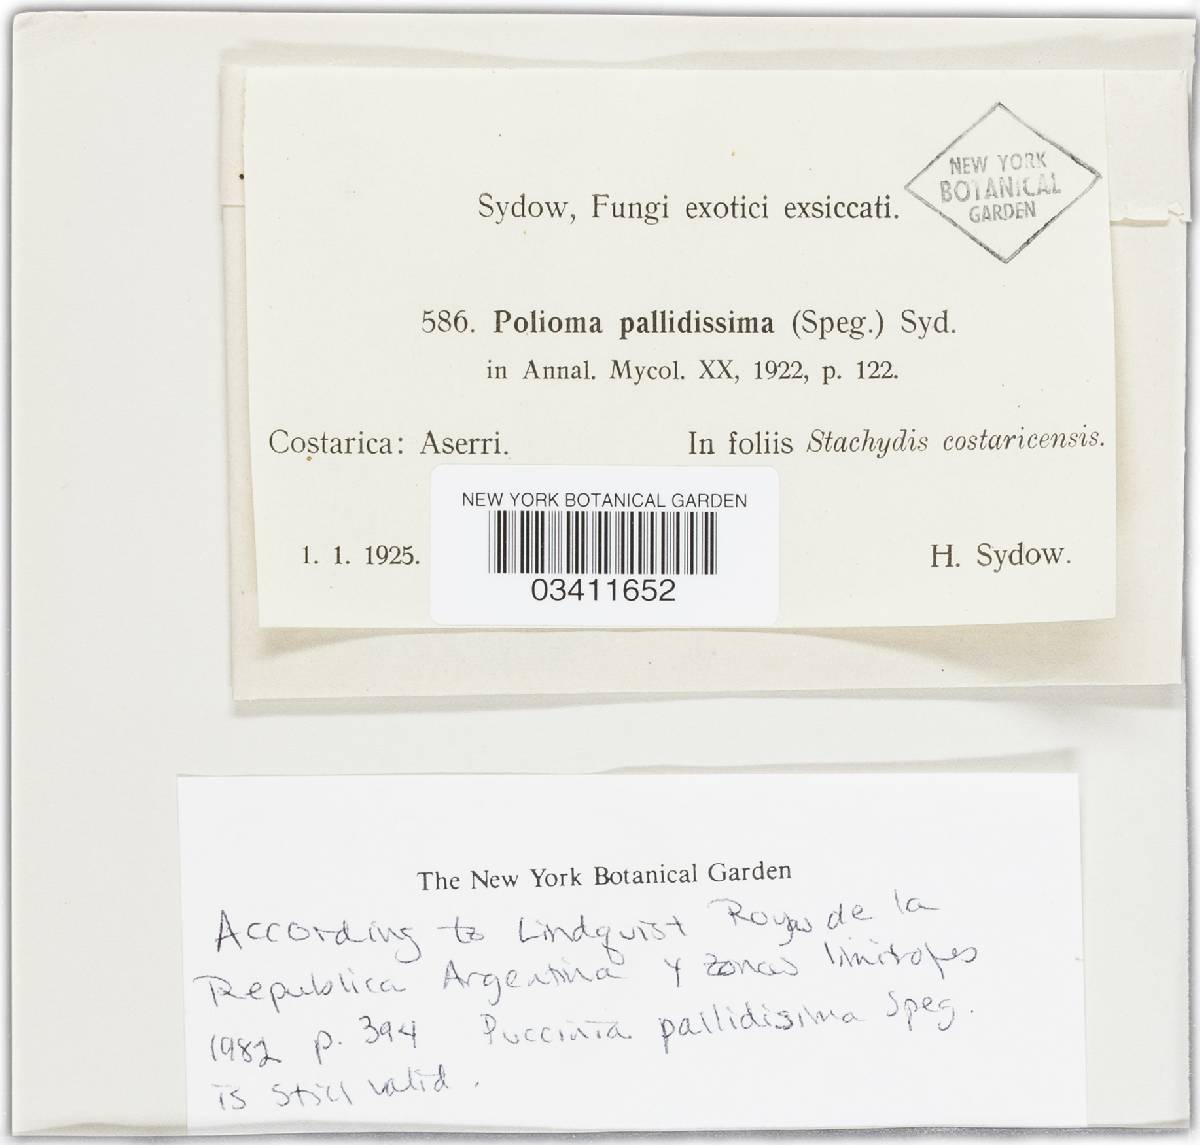 NEW YORK
BOTANICAL
GARDEN
Sydow, Fungi exotici exsiccati.
586. Polioma pallidissima (Speg.) Syd.
in Annal. Mycol. XX, 1922, p. 122.
Costarica: Aserri. In foliis Stachydis costaricensis.
NEW YORK BOTANICAL GARDEN
1. 1. 1925. H. Sydow.
03411652
The New York Botanical Garden
According to Lindquist Royas de la
Republica Argentina y zonas limitrofes
1982 p. 394 Puccinia pallidissima Speg.
is still valid.